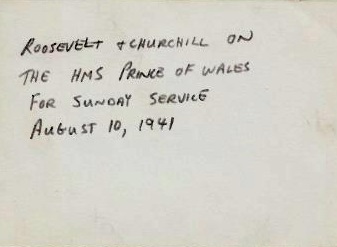 ROOSEVELT + CHURCHILL ON
THE HMS PRINCE OF WALES
FOR SUNDAY SERVICE
AUGUST 10, 1941